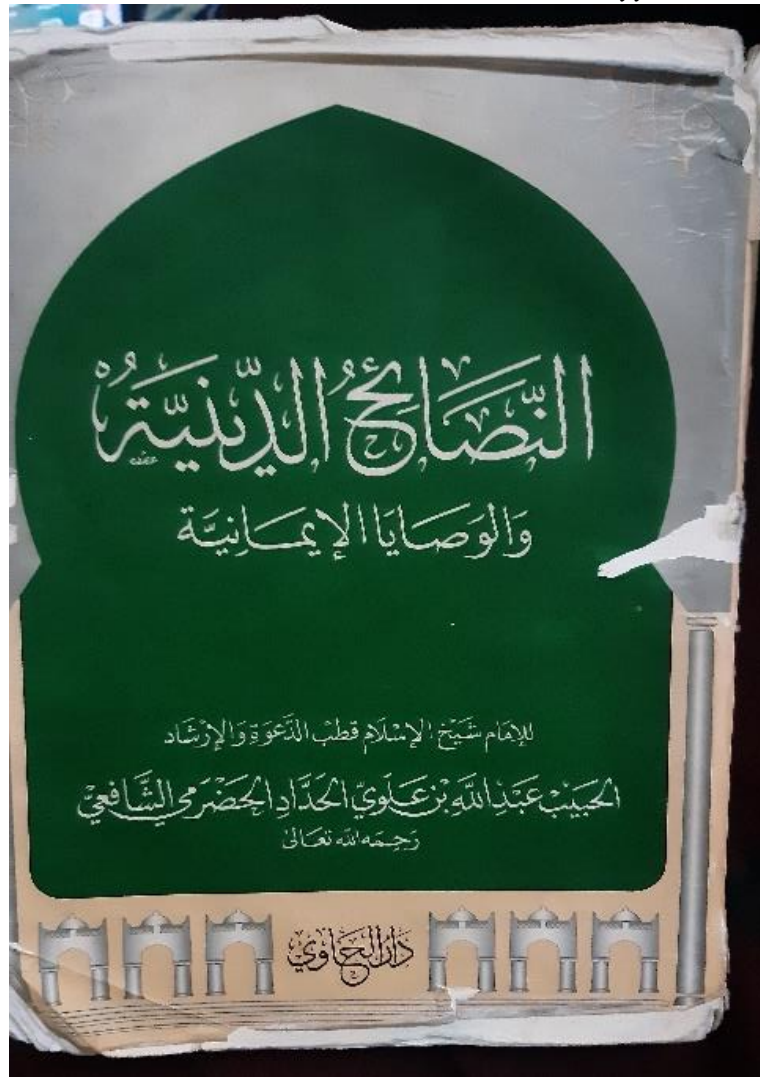 النَّصَائِحُ الدِّينِيَّةُ
وَالوَصَايَا الإِيمَانِيَّة
للإمَام شَيْخ الإسْلَام قطب الدَّعوَة وَالإرْشَاد
الحَبِيْب عَبْدِ اللَّهِ بْن عَلَوِيّ الحَدَّادِ الحَضْرَمِي الشَّافِعِيّ
رَحِمَه الله تعَالىٰ
دَارُ الحَاوِي